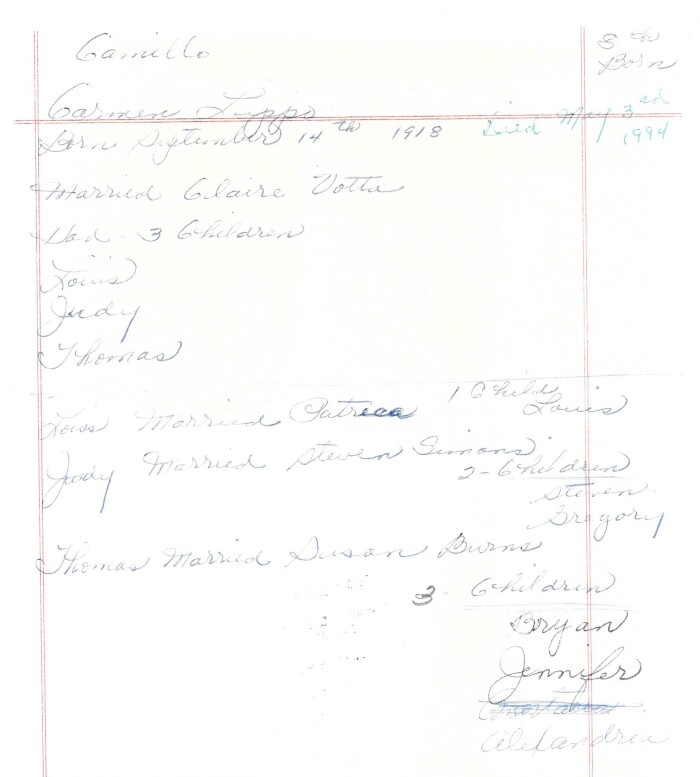 Camillo
8th
Born
Carmen Lippo
Born September 14th 1918 Died May 3rd 1994
Married Claire Votta
Had - 3 Children
Louis
Judy
Thomas
Louis Married Patreca 1 Child Louis
Judy Married Steven Simons
2 - Children
Steven
Gregory
Thomas Married Susan Burns
3 - Children
Bryan
Jennifer
Alexandrea